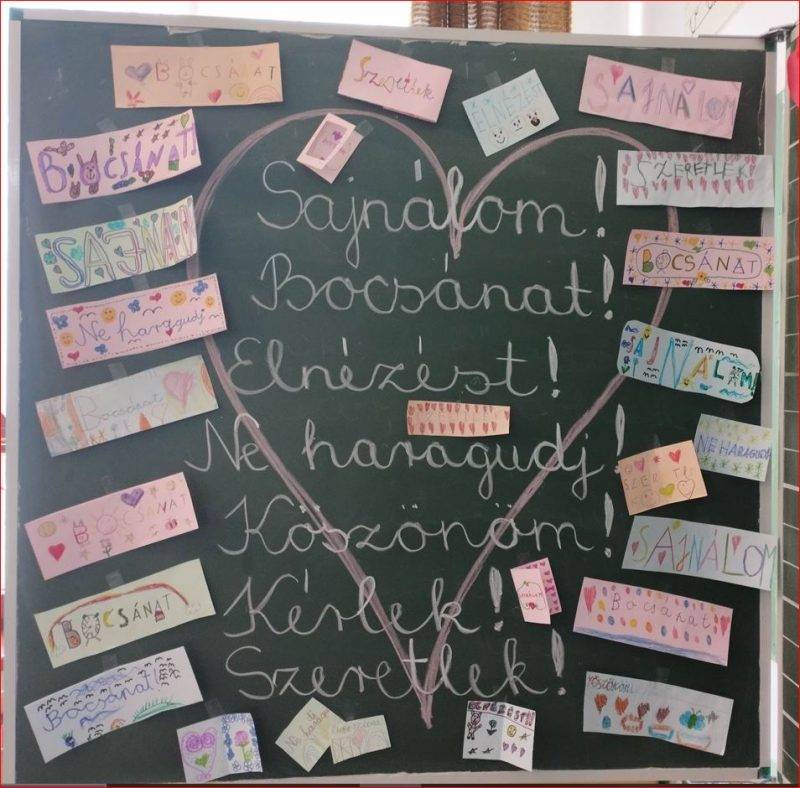 BOCSÁNAT
Szeretlek
ELNÉZÉST
SAJNÁLOM
BOCSÁNAT
SZERETLEK
SAJNÁL
BOCSÁNAT
Ne haragudj
SAJNÁLOM!
Bocsánat
NE HARAGUDJ
BOCSÁNAT
SAJNÁLOM
BOCSÁNAT
Bocsánat
Bocsánat
Sajnálom!
Bocsánat!
Elnézést!
Ne haragudj!
Köszönöm!
Kérlek!
Szeretlek!